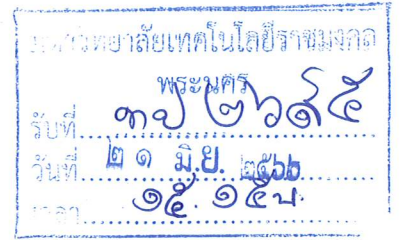 มหาวิทยาลัยเทคโนโลยีราชมงคล
พระนคร
รับที่ ๓ป ๒๖๙๕
วันที่ ๒๑ มิ.ย. ๒๕๖๖
เวลา ๑๕.๑๕น.